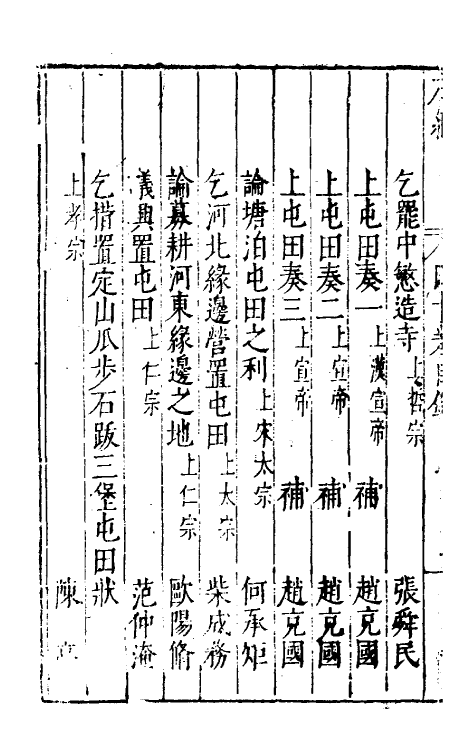 乞罷中慜造寺 上哲宗 張舜民
上屯田奏一 上漢宣帝 補 趙充國
上屯田奏二 上宣帝 補 趙充國
上屯田奏三 上宣帝 補 趙充國
論塘泊屯田之利 上宋太宗 何承矩
乞河北緣邊營置屯田 上太宗 柴成務
論募耕河東緣邊之地 上仁宗 歐陽脩
議興置屯田 上仁宗 范仲淹
乞措置定山瓜步石跋三堡屯田狀
上孝宗 陳